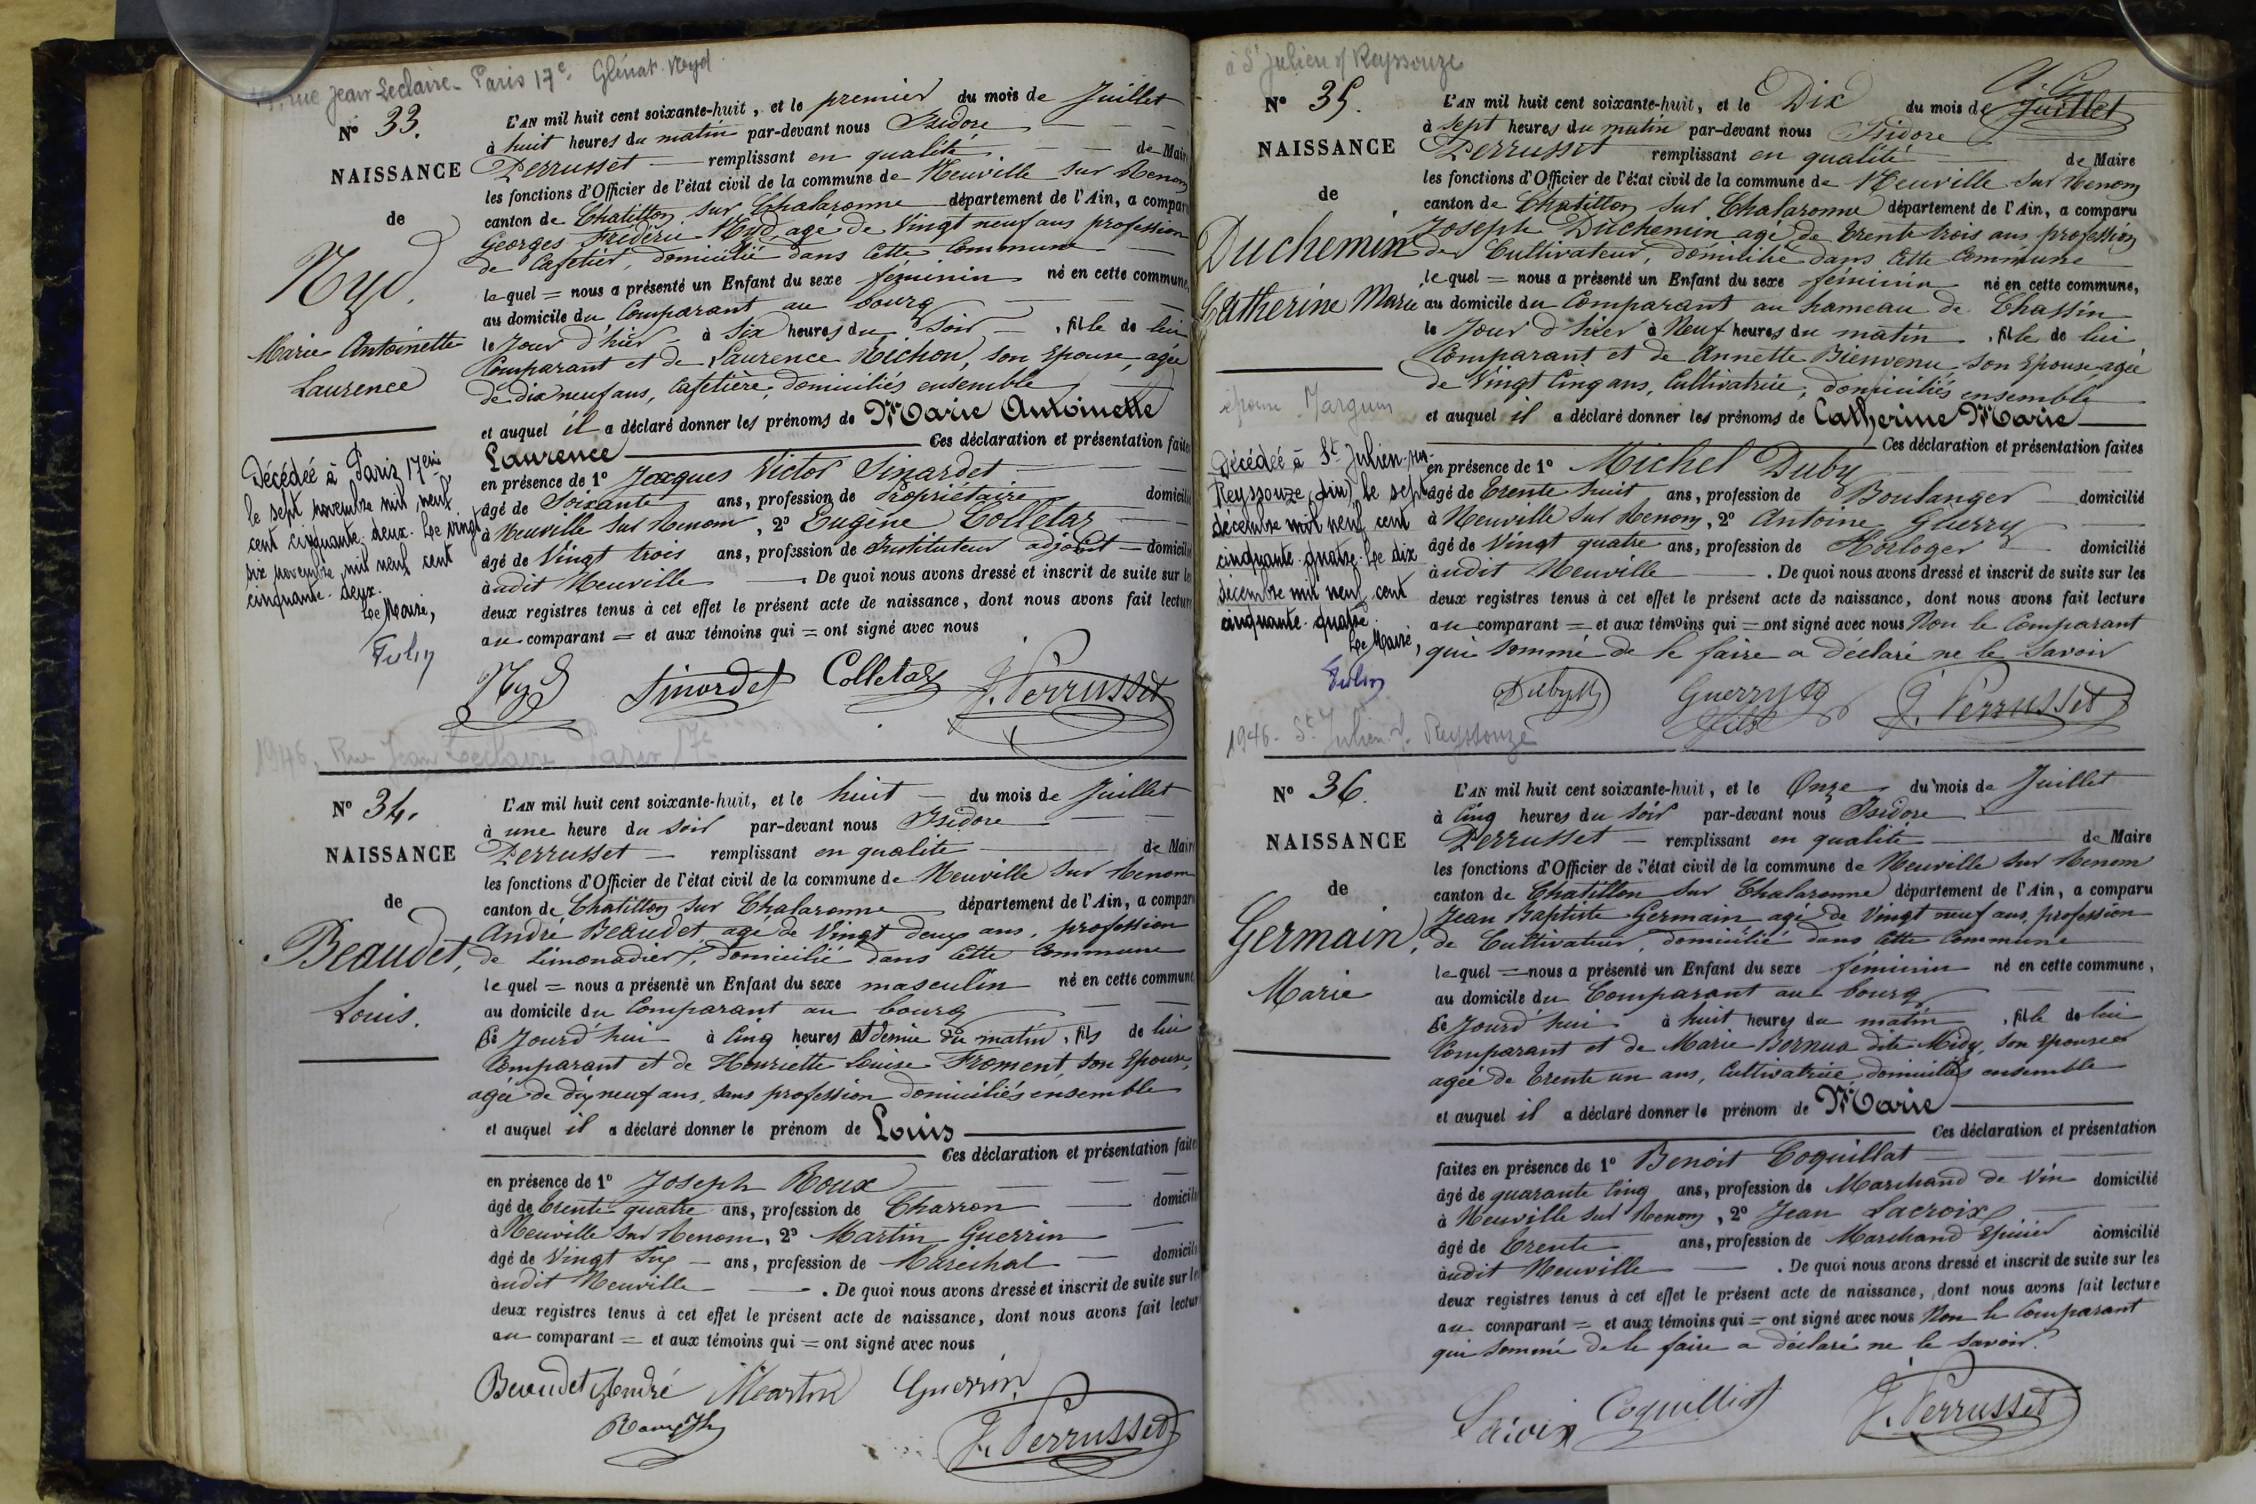 rue Jean Leclaire - Paris 17e. Glénat. Nyd
N° 33.
NAISSANCE
de
Nyd.
Marie Antoinette
Laurence
Décédée à Paris 17eme
le sept novembre mil neuf
cent cinquante deux. Le vingt
six novembre mil neuf cent
cinquante. deux.
Le Maire,
L'AN mil huit cent soixante-huit, et le premier du mois de Juillet
à huit heures du matin par-devant nous Isidore
Perrusset remplissant en qualité de Maire
les fonctions d'Officier de l'état civil de la commune de Neuville sur Renom
canton de Chatillon sur Chalaronne département de l'Ain, a comparu
Georges Frédéric Nyd, agé de Vingt neuf ans profession
de Cafetier, domicilié dans cette Commune
lequel = nous a présenté un Enfant du sexe féminin né en cette commune,
au domicile du Comparant au bourg
le Jour d'hier à Six heures du Soir , fille de lui
Comparant et de Laurence Michon, son Epouse, agée
de dix neuf ans, Cafetière, domiciliés ensemble
et auquel il a déclaré donner les prénoms de Marie Antoinette
Laurence Ces déclaration et présentation faites
en présence de 1° Jacques Victor Sinardet
âgé de Soixante ans, profession de Propriétaire domicilié
à Neuville sur Renom, 2° Eugène Colletaz
âgé de Vingt trois ans, profession de Instituteur adjoint domicilié
àudit Neuville . De quoi nous avons dressé et inscrit de suite sur les
deux registres tenus à cet effet le présent acte de naissance, dont nous avons fait lecture
au comparant = et aux témoins qui = ont signé avec nous
Nyd Sinardet Colletaz J. Perrusset
1946, Rue Jean Leclaire Paris 17e
N° 34.
NAISSANCE
de
Beaudet,
Louis.
L'AN mil huit cent soixante-huit, et le huit du mois de Juillet
à une heure du Soir par-devant nous Isidore
Perrusset remplissant en qualité de Maire
les fonctions d'Officier de l'état civil de la commune de Neuville sur Renom
canton de Chatillon sur Chalaronne département de l'Ain, a comparu
André Beaudet, agé de Vingt deux ans, profession
de Limonadier, domicilié dans cette Commune
lequel = nous a présenté un Enfant du sexe masculin né en cette commune
au domicile du Comparant au bourg
Ce Jourd'hui à Cinq heures et demie du matin, fils de lui
Comparant et de Henriette Louise Froment, son Epouse,
agée de dix neuf ans, sans profession domiciliés ensemble
et auquel il a déclaré donner le prénom de Louis
Ces déclaration et présentation faites
en présence de 1° Joseph Roux
âgé de trente quatre ans, profession de Charron domicilié
à Neuville sur Renom, 2° Martin Guerrin
âgé de Vingt Six ans, profession de Maréchal domicilié
àudit Neuville . De quoi nous avons dressé et inscrit de suite sur les
deux registres tenus à cet effet le présent acte de naissance, dont nous avons fait lecture
au comparant = et aux témoins qui = ont signé avec nous
Beaudet André Martin Guerrin
J. Perrusset
à St Julien s/ Reyssouze
N° 35.
NAISSANCE
de
Duchemin
Catherine Marie
Décédée à St Julien-sur-
Reyssouze (Ain) le sept
décembre mil neuf cent
cinquante. quatre. Le dix
décembre mil neuf cent
cinquante. quatre.
Le Maire,
L'AN mil huit cent soixante-huit, et le Dix du mois de Juillet
à sept heures du matin par-devant nous Isidore
Perrusset remplissant en qualité de Maire
les fonctions d'Officier de l'état civil de la commune de Neuville sur Renom
canton de Chatillon sur Chalaronne département de l'Ain, a comparu
Joseph Duchemin agé de trente trois ans, profession
de Cultivateur, domicilié dans cette Commune
lequel = nous a présenté un Enfant du sexe féminin né en cette commune,
au domicile du Comparant au hameau de Chassin
le Jour d'hier à Neuf heures du matin , fille de lui
Comparant et de Annette Bienvenu, son Epouse agée
de Vingt Cinq ans, Cultivatrice, domiciliés ensemble
et auquel il a déclaré donner les prénoms de Catherine Marie
Ces déclaration et présentation faites
en présence de 1° Michel Duby
âgé de trente huit ans, profession de Boulanger domicilié
à Neuville sur Renom, 2° Antoine Guerry
âgé de Vingt quatre ans, profession de Horloger domicilié
àudit Neuville . De quoi nous avons dressé et inscrit de suite sur les
deux registres tenus à cet effet le présent acte de naissance, dont nous avons fait lecture
au comparant = et aux témoins qui = ont signé avec nous Non le Comparant
qui sommé de le faire a déclaré ne le Savoir
Duby Guerry fils J. Perrusset
1946 - St Julien s. Reyssouze
N° 36.
NAISSANCE
de
Germain,
Marie
L'AN mil huit cent soixante-huit, et le Onze du mois de Juillet
à Cinq heures du Soir par-devant nous Isidore
Perrusset remplissant en qualité de Maire
les fonctions d'Officier de l'état civil de la commune de Neuville sur Renom
canton de Chatillon sur Chalaronne département de l'Ain, a comparu
Jean Baptiste Germain agé de Vingt neuf ans, profession
de Cultivateur, domicilié dans cette Commune
lequel = nous a présenté un Enfant du sexe féminin né en cette commune,
au domicile du Comparant au bourg
Ce Jourd'hui à huit heures du matin , fille de lui
Comparant et de Marie Bornua dite Midy, Son Epouse
agée de trente un ans, Cultivatrice domiciliés ensemble
et auquel il a déclaré donner le prénom de Marie
Ces déclaration et présentation
faites en présence de 1° Benoit Coquillat
âgé de quarante Cinq ans, profession de Marchand de Vin domicilié
à Neuville sur Renom, 2° Jean Lacroix
âgé de trente ans, profession de Marchand Epicier domicilié
àudit Neuville . De quoi nous avons dressé et inscrit de suite sur les
deux registres tenus à cet effet le présent acte de naissance, dont nous avons fait lecture
au comparant = et aux témoins qui = ont signé avec nous Non le Comparant
qui sommé de le faire a déclaré ne le savoir.
J. Perrusset